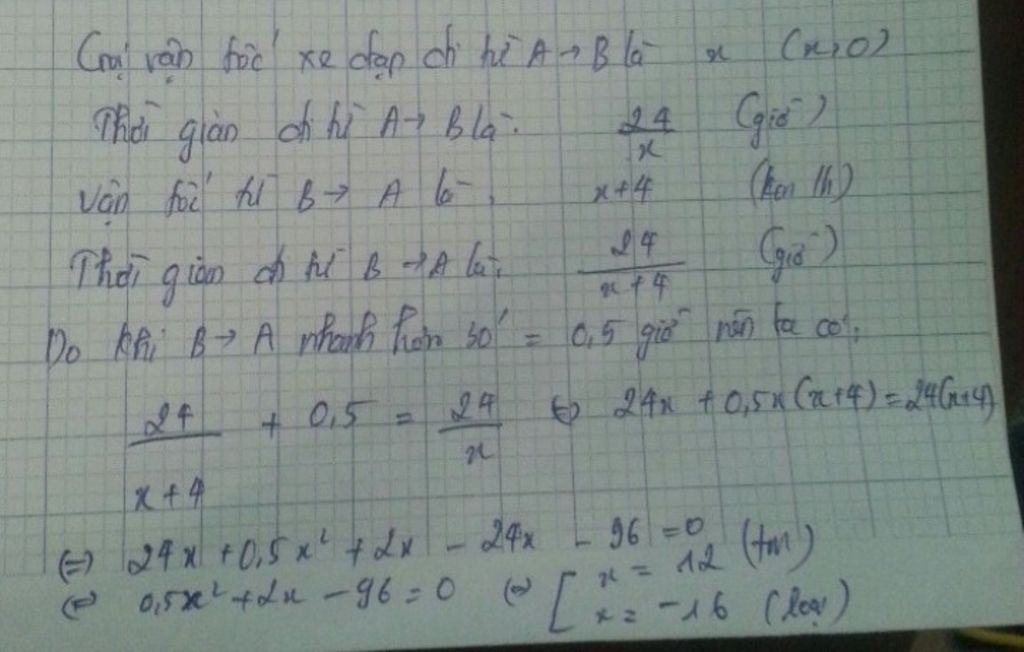 Gọi vận tốc xe đạp đi từ A → B là x (x>0)
Thời gian đi từ A → B là: 24/x (giờ)
vận tốc từ B → A là: x+4 (km/h)
Thời gian đi từ B → A là: 24/(x+4) (giờ)
Do khi B → A nhanh hơn 30' = 0,5 giờ nên ta có:
24/(x+4) + 0,5 = 24/x ⇔ 24x + 0,5x(x+4) = 24(x+4)
⇔ 24x + 0,5x² + 2x - 24x - 96 = 0
⇔ 0,5x² + 2x - 96 = 0 ⇔ [ x = 12 (tm)
x = -16 (loại)